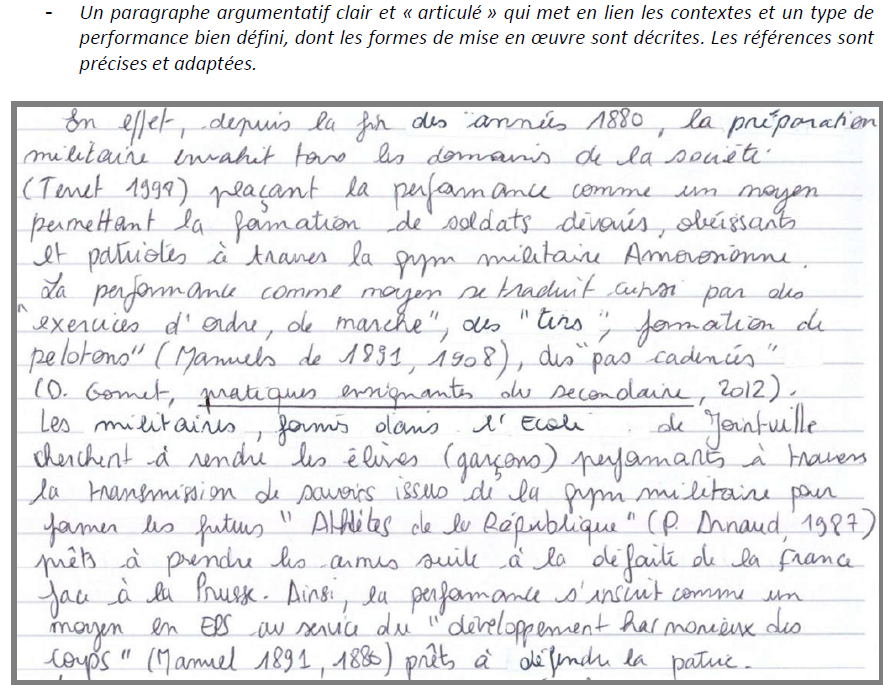 - Un paragraphe argumentatif clair et « articulé » qui met en lien les contextes et un type de
performance bien défini, dont les formes de mise en œuvre sont décrites. Les références sont
précises et adaptées.
En effet, depuis la fin des années 1880, la préparation
militaire envahit tous les domaines de la société
(Terret 1998) plaçant la performance comme un moyen
permettant la formation de soldats dévoués, obéissants
et patriotes à travers la gym militaire Amorosienne.
La performance comme moyen se traduit aussi par des
"exercices d'ordre, de marche", des "tirs", formation de
pelotons" (Manuels de 1891, 1908), des "pas cadencés"
(D. Gomet, pratiques enseignantes du secondaire, 2012).
Les militaires, formés dans l'Ecole de Joinville
cherchent à rendre les élèves (garçons) performants à travers
la transmission de savoirs issus de la gym militaire pour
former les futurs "Athlètes de la République" (P. Arnaud, 1987)
prêts à prendre les armes suite à la défaite de la France
face à la Prusse. Ainsi, la performance s'inscrit comme un
moyen en EPS au service du "développement harmonieux des
corps" (Manuel 1891, 1880) prêts à défendre la patrie.